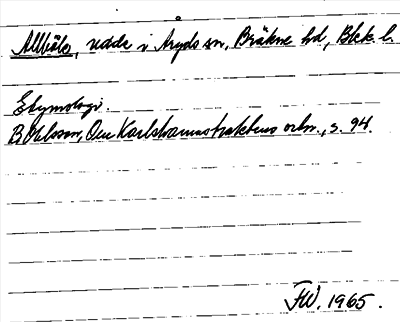 Allbäla, udde i Aryds sn, Bräkne hd, Blek. l.
Etymologi.
B. Ohlsson, Om Karlshamnstraktens ortn., s. 94.
FW. 1965.